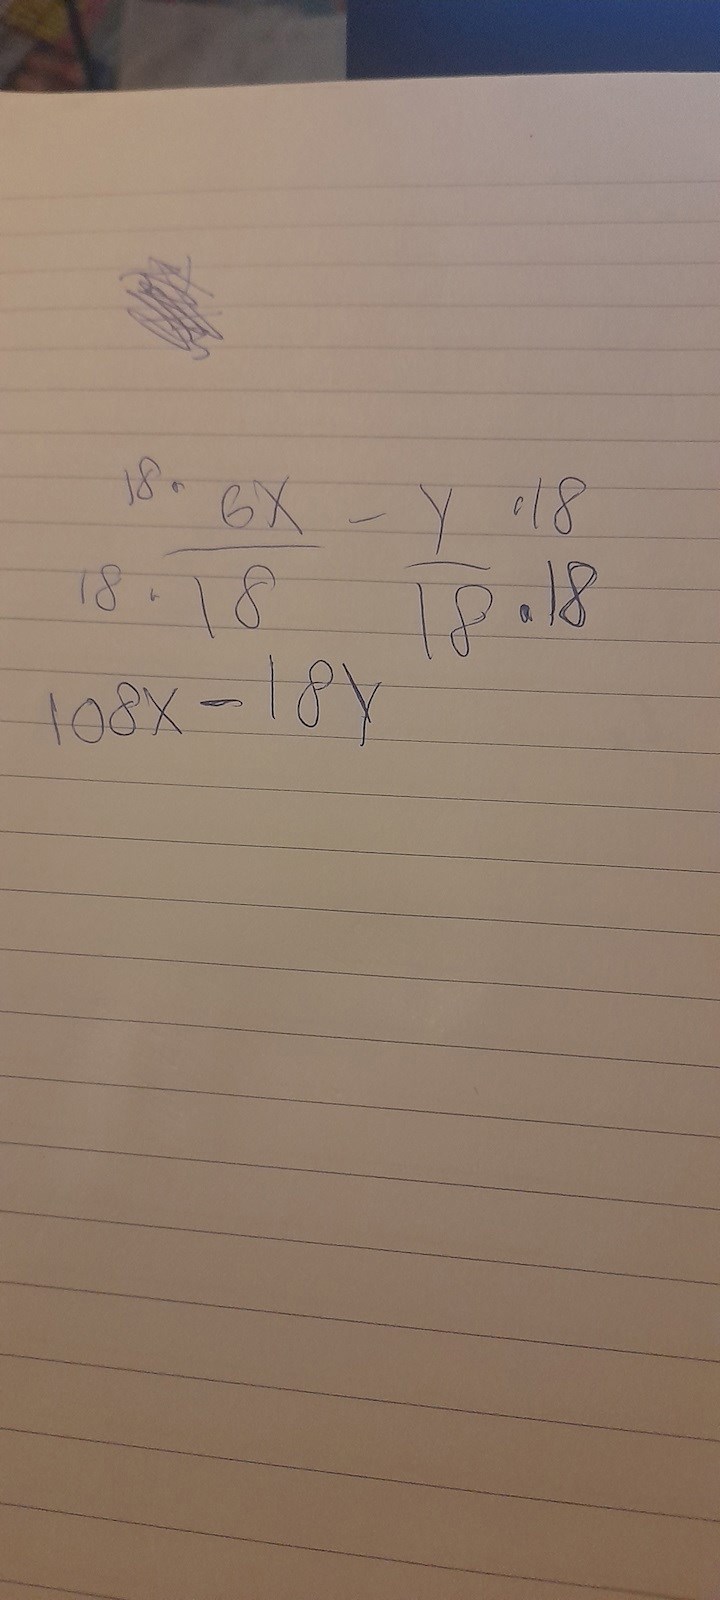 18· 6X - Y ·18
18· 18 18 ·18
108X - 18Y